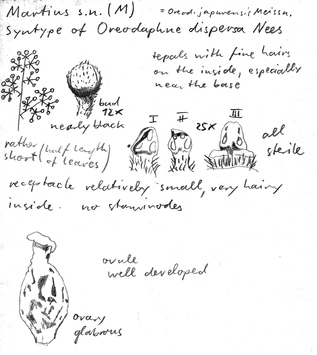 Martius s.n. (M) = Oreod. japurensis Meissn.
Syntype of Oreodaphne dispersa Nees
tepals with fine hairs
on the inside, especially
near the base
bud
12x
nearly black
I II 25x III
all
sterile
rather (half length)
short of leaves)
receptacle relatively small, very hairy
inside. no staminodes
ovule
well developed
ovary
glabrous